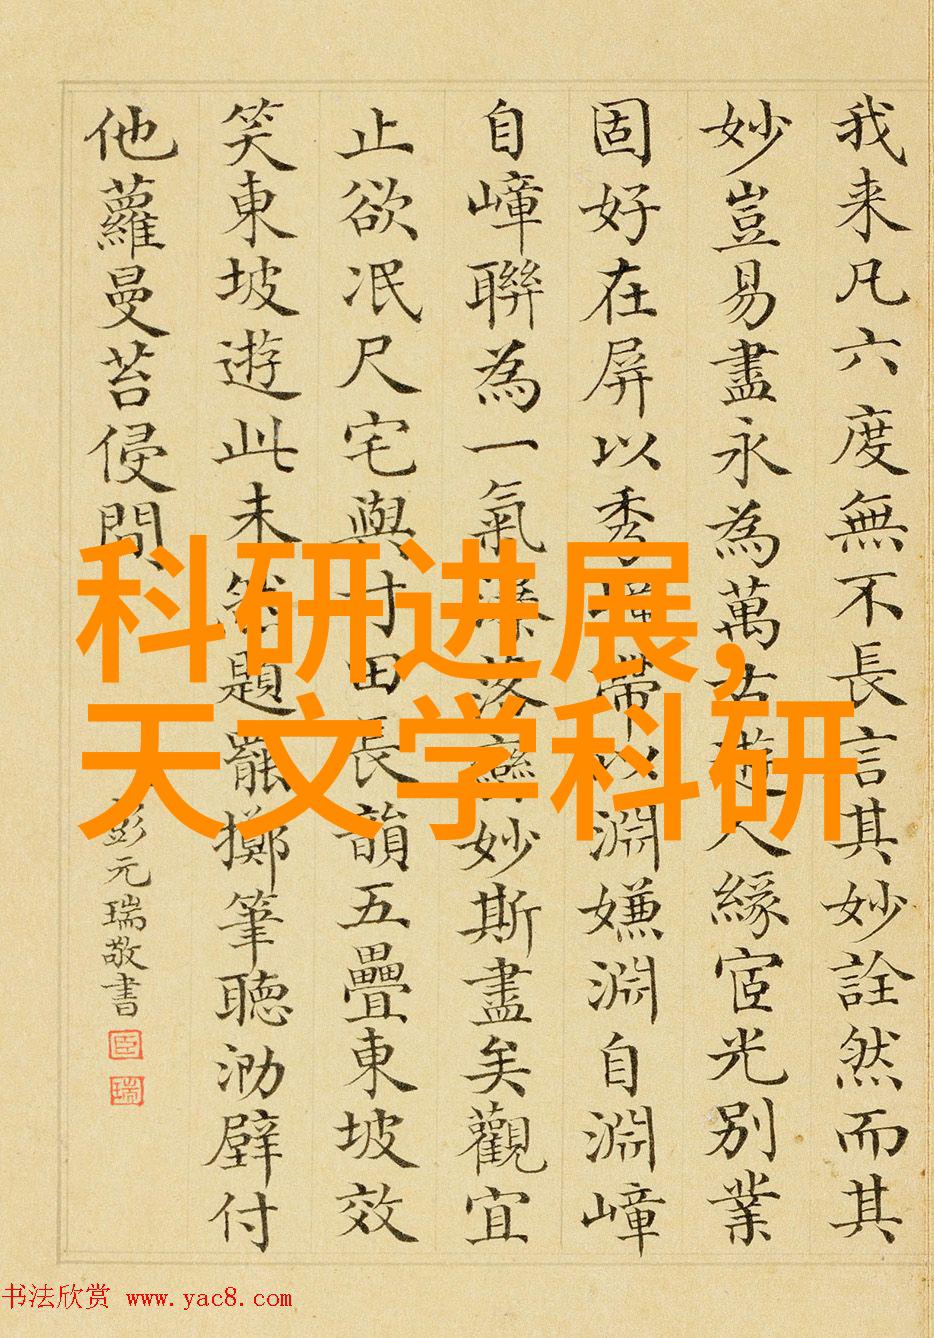 我来凡六度無不長言其妙詮然而其
妙豈易盡永為萬古遊人緣宦光別業
固好在屏以秀帶以淵嫌淵自淵嶂
自嶂聯為一氣落妙斯盡矣觀宜
止欲泯尺宅與寸田長韻五疊東坡效
笑東坡遊此未然題罷擲筆聽泐壁付
他蘿曼苔侵問
彭元瑞敬書
臣
瑞
科研进展,
天文学科研
书法欣赏 www.yac8.com